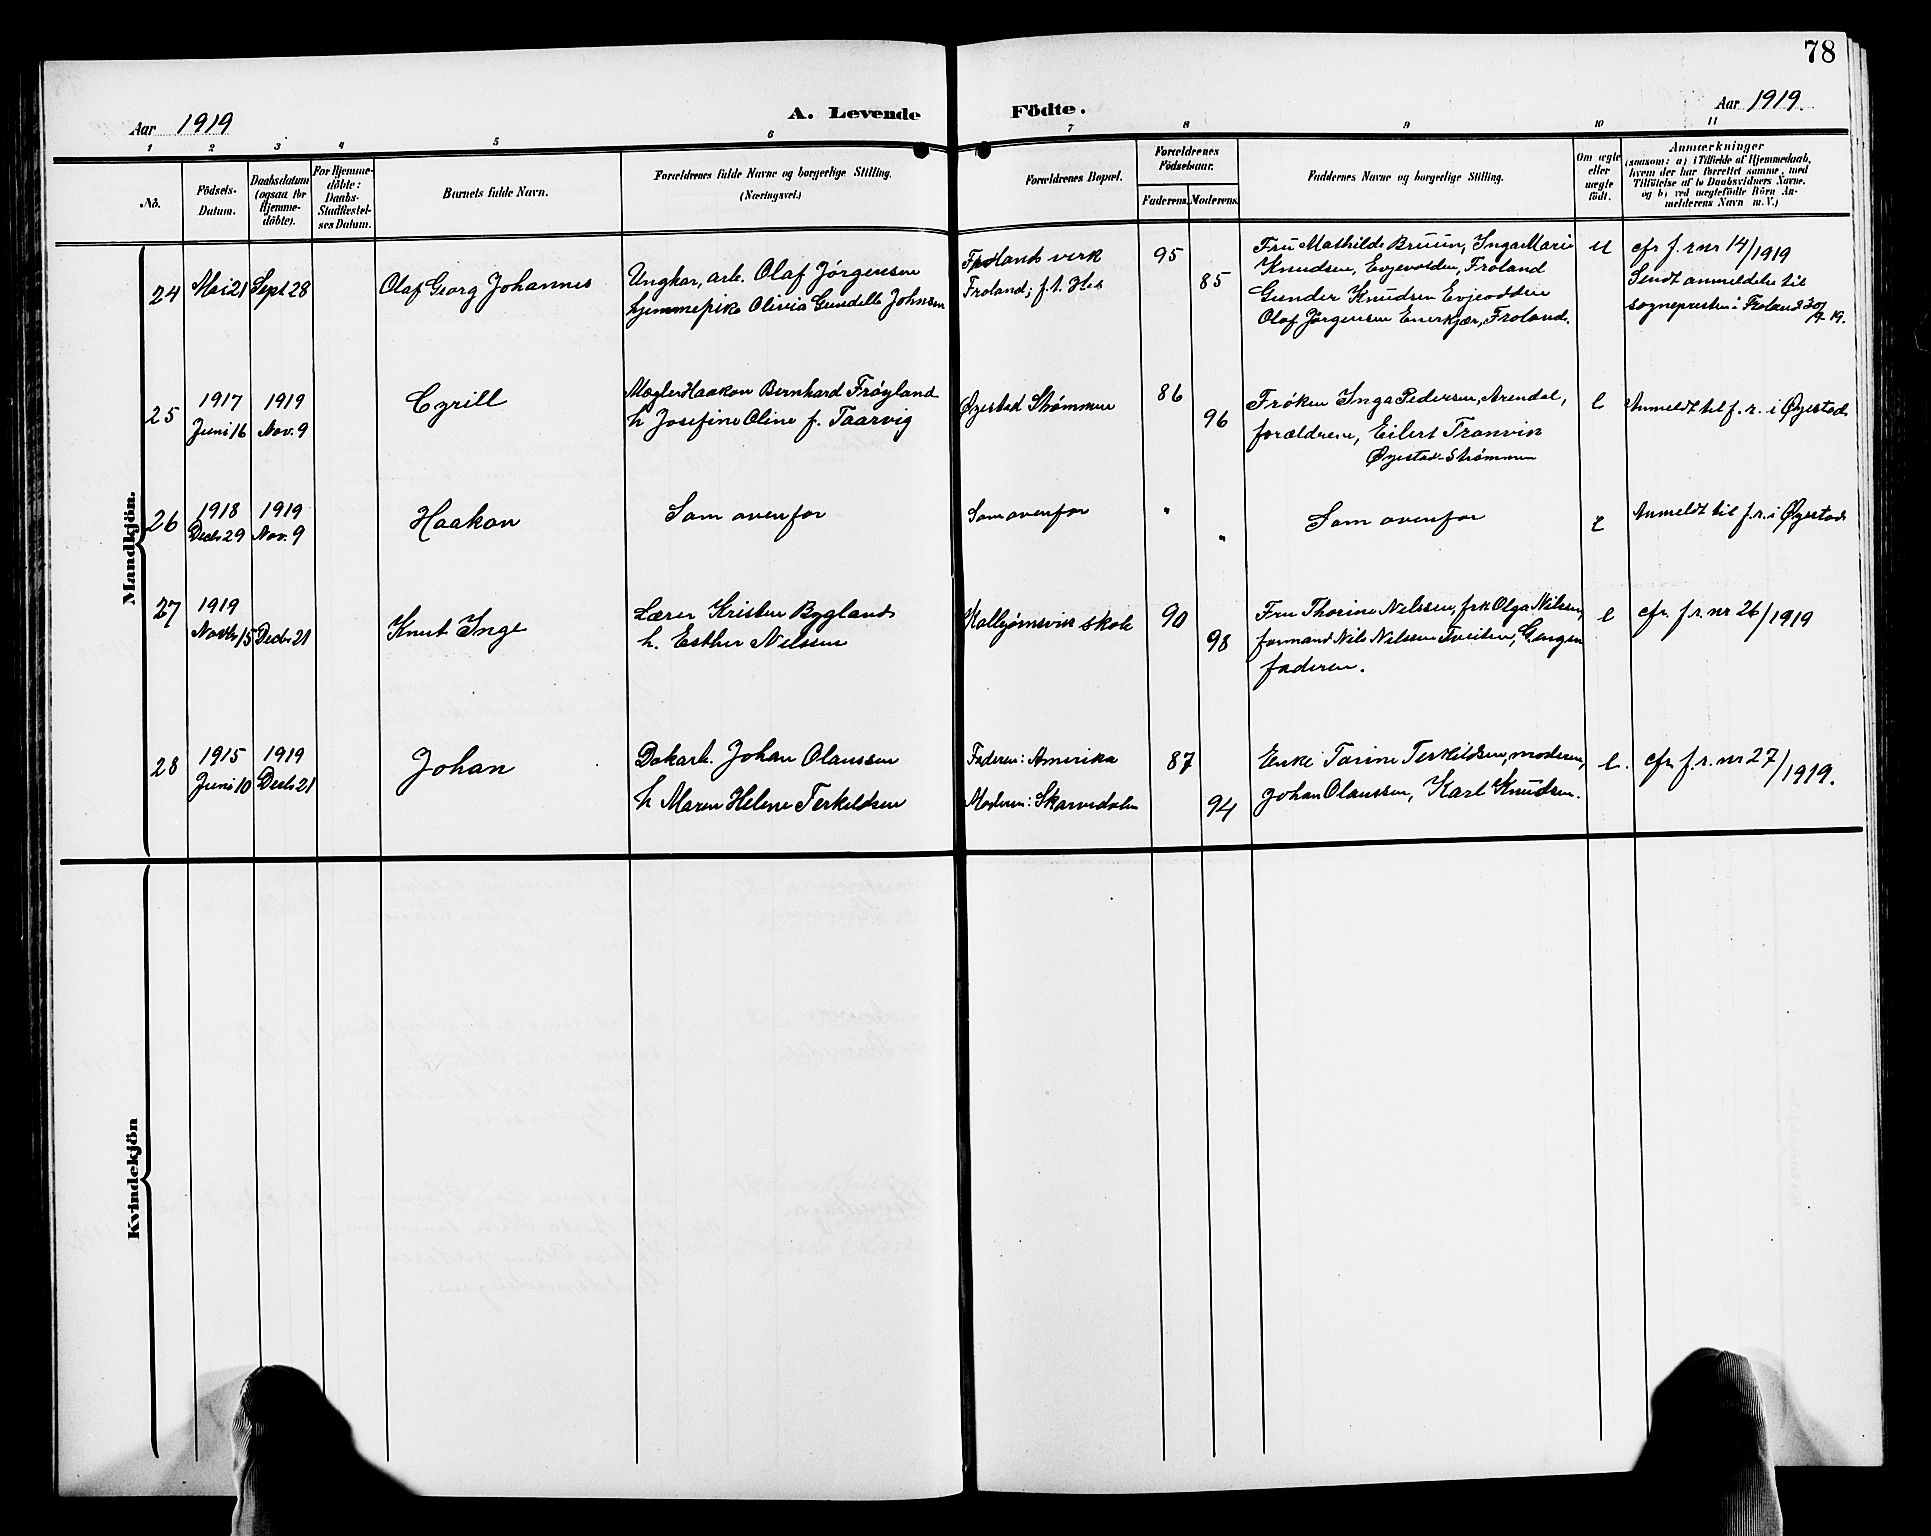 78
Aar 1919
A. Levende Födte.
Aar 1919.
1 2 3 4 5 6 7 8 9 10 11
No.
Födsels-
Datum.
Daabsdatum
(ogsaa for
Hjemme-
döbte).
For Hjemme-
döbte:
Daabs-
Stadfæstel-
ses Datum.
Barnets fulde Navn.
Forældrenes fulde Navne og borgerlige Stilling.
(Næringsvei.)
Forældrenes Bopæl.
Forældrenes
Födselsaar.
Faderens. Moderens.
Faddernes Navne og borgerlige Stilling.
Om ægte
eller
uægte
födt.
Anmærkninger
(saasom: a) i Tilfælde af Hjemmedaab,
hvem der har forrettet samme, med
Tilföielse af to Daabsvidners Navne,
og b) ved uægtefödte Börn An-
melderens Navn m. V.)
Mandkjön.
24 Mai 21 Sept 28 Olaf Georg Johannes
Ungkar, arb. Olaf Jörgensen
hjemmepike Olivia Gundelle Johnsen
Frolands verk
Froland; f. t. His
95
85
Fru Mathilde Bruun, Inga Marie
Knudsen, Evjevolden, Froland
Gunder Knudsen Evjeodden
Olaf Jørgensen Enerkjær, Froland.
U
cfr f. r nr 14/1919
Sendt anmeldelse til
sognepresten i Froland 30/9 19.
25
1917 1919
Juni 16 Nov. 9
Cyrill
Mægler Haakon Bernhard Frøyland
h Josefine Oline f. Taarvig
Øyestad Strømmen
86
96
Frøken Inga Pedersen, Arendal,
forældrene, Eilert Tranvik
Øyestad-Strømmen
e
Anmeldt til f. r. i Øyestad
26
1918 1919
Decbr 29 Nov. 9
Haakon
Som ovenfor
Som ovenfor
"
"
Som ovenfor
e
Anmeldt til f. r. i Øyestad
27
1919
Novbr 15 Decbr 21
Knut Inge
Lærer Kristen Bygland
h. Esther Nilsen
Kolbjørnsvik skole
90
98
Fru Thorine Nilssen, frk Olga Nilsen,
formand Nils Nilssen Tveiten,
faderen.
e
cfr. f. r. nr 26/1919
28
1915 1919
Juni 10 Decbr 21
Johan
Dokarb. Johan Olaussen
h Maren Helene Terkildsen
Faderen: Amerika
Moderen: Skarvedalen
87
94
Enke Tarine Terkildsen, moderen,
Johan Olaussen, Karl Knudsen.
e.
cfr. f. r. nr 27/1919.
Kvindekjön